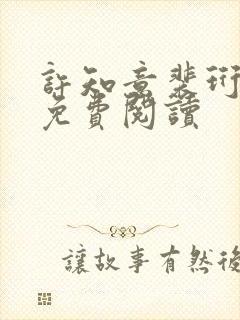 許知意裴珩
免費閱讀
讓故事有然後